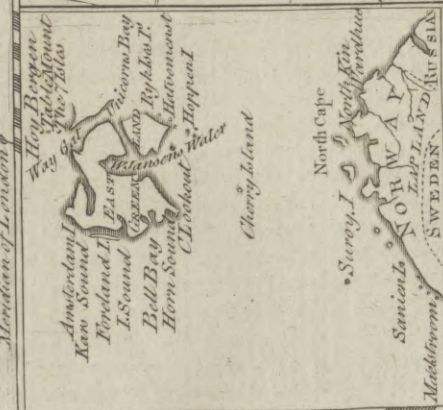 Meridian of London
Hoy Bergen
Table Mount
The 7 Isles
Way Gat
Unicorns Bay
Rykless I.
Halvemenst
Hoppen I
W. Jansons Water
EAST
GREEN
LAND
Amsterdam I.
Kars Sound
Foreland I.
I. Sound
Bell Bay
Horn Sound
C. Lookout
Cherry Island
North Cape
North Kin
Wardhus
Suroy I.
Sanien I.
Maelstroom
NORWAY
LAPLAND
SWEDEN
RUSSIA